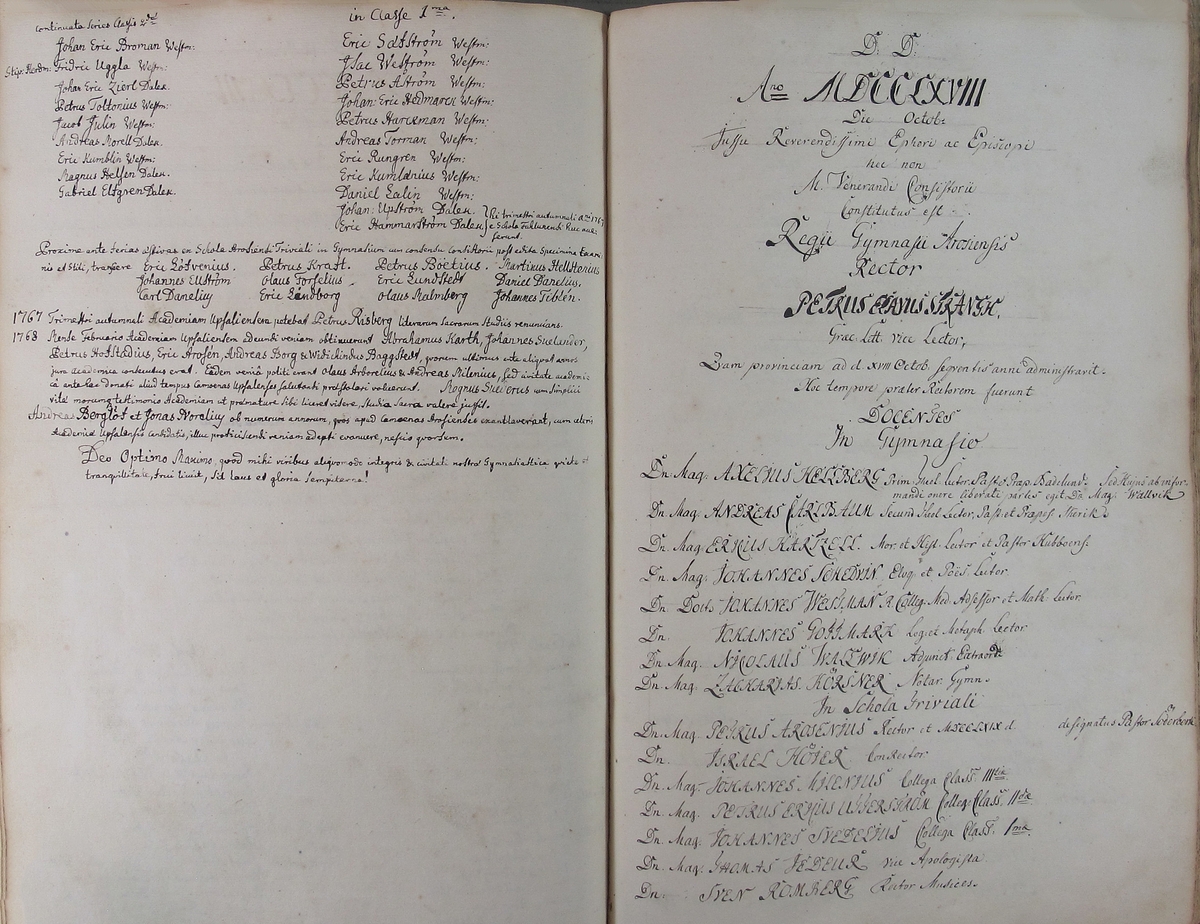 Continuata Series Classis 2dæ
Johan Eric Broman Westm:
Stip: Fridric Uggla Westm:
Johan Eric Zierl Dalek.
Petrus Toltonius Westm:
Jacob Julin Westm:
Andreas Morell Dalek.
Eric Kumblin Westm:
Magnus Helsen Dalek.
Gabriel Elfgren Dalek.
in Classe 1ma.
Eric Säfström Westm:
Isac Weström Westm:
Petrus Åström Westm:
Johan: Eric Hedmarck Westm:
Petrus Harckman Westm:
Andreas Torman Westm:
Eric Rungren Westm:
Eric Kumlænius Westm:
Daniel Salin Westm:
Johan: Upström Dalek. hi trimestri autumnali a:no 1767
Eric Hammarström Dalek. e Schola huc
ferunt.
Proxime ante ferias æstivas ex Schola Arosiensi Triviali in Gymnasium cum consensu Consistorii post edita Specimina Exami-
nis et Stili, transiere Eric Löfvenius. Petrus Kraft. Petrus Boëtius. Martinus Hellstenius
Johannes Ellström Olaus Forselius. Eric Lundstedt Daniel Danelius,
Carl Daneliuy Eric Landborg Olaus Malmberg Johannes Tiblén.
1767 Trimestri autumnali Academiam Upsaliensem petebat Petrus Risberg literarum sacrarum Studiis renuncians.
1768 Mense Februario Academiam Upsaliensem adeundi veniam obtinuerunt Abrahamus Karth, Johannes Suelander,
Petrus Hofstadius, Eric Arosén, Andreas Borg & Widichindus Baggstedt, quorum ultimus ante aliquot annos
jura academica consecutus erat. Eadem venia potiti erant Olaus Arborelius & Andreas Milenius, sed civitate academi-
ca antehac donati aliud tempus Camoenas Upsalenses salutandi præstolari voluerunt. Magnus Suecerus cum simplici
vitæ morumque testimonio Academiam ut præmature sibi liceret videre, Studia Sacra valere jussit.
Andreas Berglöf et Jonas Noræliuy ob numerum annorum, quos apud Camoenas Arosienses exantlaverant, cum
Academiæ Upsaliensis Candidatis, illuc proficiscendi veniam adepti evanuere, nescio quorsum.
Deo Optimo Maximo, quod mihi viribus aliquomodo integris & civitate nostra Gymnastica quiete et
tranquillitate, frui licuit, sit laus et gloria Sempiterna!
D. D.
Ano MDCCLXVIII
Die Octob:
Jussu Reverendissimi Ephori ac Episcopi
nec non
M. Venerandi Consistorii
Constitutus est
Regii Gymnasii Arosiensis
Rector
PETRUS STRANDH.
Græc. Litt. vice Lector,
Qvam provinciam ad d. XVIII Octob. seqventis anni administravit.
Hoc tempore præter Rectorem fuerunt
DOCENTES
In Gymnasio
Dn. Mag: AXELIUS HELLBERG Prim. Theol. Lector. Past. et Præp. Badelund. Sed Hujus ab infor-
mandi onere liberati partes egit Dn. Mag: Wallvik
Dn. Mag: ANDREAS CARLBAUM Secund. Theol. Lector, Past. et Præpos.
Dn. Mag: ERICUS HARTZELL. Mor. et Hist. Lector et Pastor Hubboens.
Dn. Mag: JOHANNES SCHEDVIN Eloq. et Poës. Lector.
Dn. Doct: JOHANNES WESSMAN R. Colleg. Med. Adsessor et Math. Lector.
Dn. JOHANNES GOTTMARK Log: et Metaph. Lector
Dn. Mag. NICOLAUS WALLWIK Adjunct. Extraord:
Dn. Mag: ZACHARIAS. HÖRSNER Notar. Gymn.
In Schola Triviali
Dn. Mag. PETRUS AROSENIUS Rector et MDCCLXIX d. designatus Pastor Söderberk
Dn. ISRAEL HÖIJER ConRector
Dn. Mag. JOHANNES MILENIUS Collega Class. IIItiæ
Dn. Mag. PETRUS ERICUS UPPERSTRÖM Colleg. Class. IIdæ
Dn. Mag. JOHANNES SVEDELIUS Collega Class. Imæ.
Dn. Mag. THOMAS FEDEUR vice Apologista
Dn. SVEN ROMBERG Rector Musices.